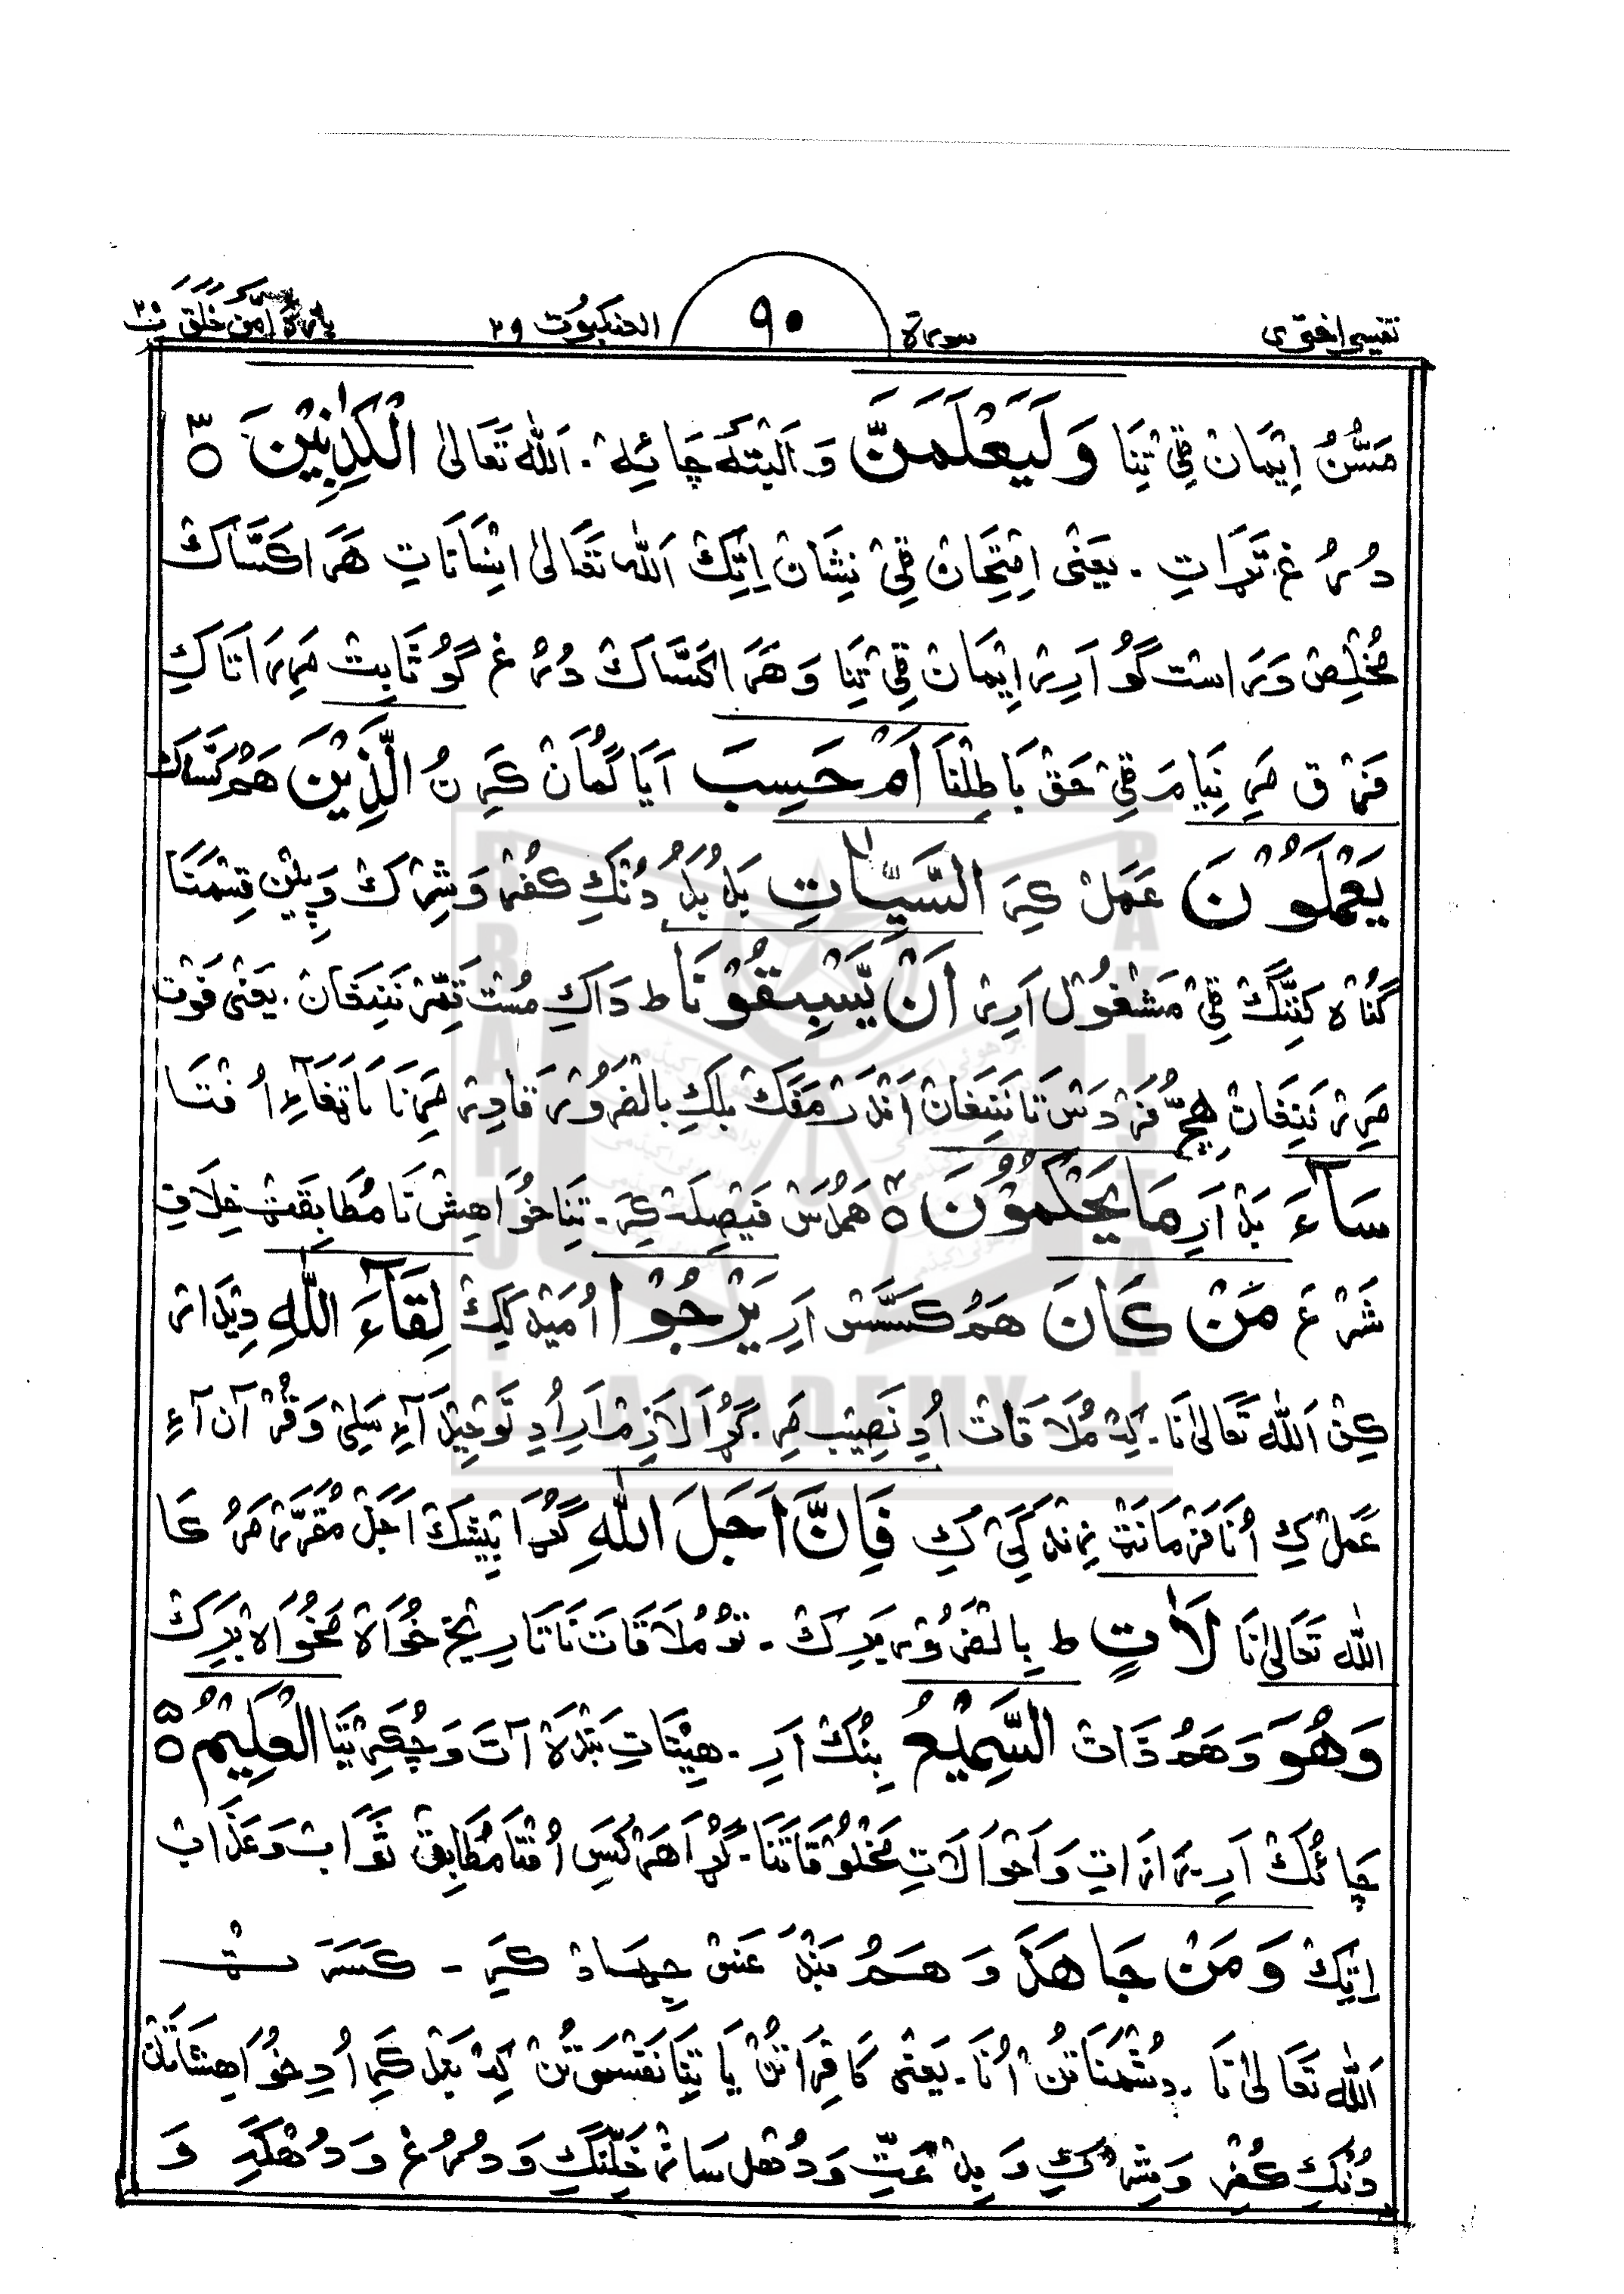 تفسیر اختری سورة ٩٠ العنکبوت ٢٩ پارہ امن خلق ٢٠
مَسُّنُ اِیْمَانْ ٹِیْ تِنَا وَلَیَعْلَمَنَّ وَ اَلْبَتَّہ چَائِہ۔ اَللّٰہ تَعَالیٰ الْکٰذِبِیْنَ ٥ ٣
دُرُغ تَرَاتِ ۔ یَعْنٰی اِمْتِحَانْ ٹِیْ نِشَانْ اِتِکْ اَللّٰہ تَعَالیٰ اِنْسَانَاتِ ھَرَا کَسَّاکْ
مُخْلِصْ وَرَاسْت گُو اَرِیْر اِیْمَانْ ٹِیْ تِنَا وَ ھَرَا کَسَّاکْ دُرُغ گُو ثَابِتْ مَرِرَ اَتَاکِ
فَرْق مَرِ نِیَامَ ٹِیْ حَقْ بَاطِلْنَا اَمْ حَسِبَ اَیَا گُمَانْ کَرِنُ الَّذِیْنَ ھَمُ کَسَّاکْ
یَعْمَلُوْنَ عَمَلْ کِرَ السَّیِّاٰتِ بَدُ بَدُ دُنْکِ کُفْر وَ شِرْکْ وَ پِیْن قِسْمَنَا
گُنَاہ کَنِنْگْ ٹِیْ مَشْغُوْل اَرِیْر اَنْ یَّسْبِقُوْنَا ط دَاکِ مُسْت تَمِّر نَنِیْغَانْ۔ یَعْنٰی فَوْت
مَرِیْر نَنِیْغَانْ ھِیْچُّ فَرْدَسْ نَا نَنِیْغَانْ اَنْدَرْ مَفَکْ بَلْکِ بِالضَّرُوْر قَادِیْر مَرِنَا نَاتِغَآءِ اُفْتَا
سَآءَ بَدْ اَرِ مَا یَحْکُمُوْنَ ٥ ٤ ھَمُدُسْ فَیْصِلَہ کِرَ۔ تِنَا خُوَاھِشْ نَا مُطَابِقَٹ خِلَافِ
شَرْع مَنْ کَانَ ھَمُ کَسَسْ اَرِ یَرْجُوْا اُمَیْد کِیْکْ لِقَآءَ اللّٰہِ دِیْدَار
کِیْن اَللّٰہ تَعَالیٰ نَا۔ کِہ مُلَاقَاتْ اُدِ نَصِیْب مَرِ۔ گُڑَا لَازِمْ اَرِ اُدِ تَوْحِیْد آءِ سَلِیْ وَ قُرْآن آءِ
عَمَلْ کِ اُنَا فَرْمَانَٹْ زِنْدَگِیْ کِ فَاِنَّ اَجَلَ اللّٰہِ گُڑَا بِیْشَکْ اَجَلْ مُقَرَّر مَرُکَا
اللّٰہ تَعَالیٰ نَا لَاٰتٍ ط بِالضَّرُوْر بَرِکْ ۔ نَوْ مُلَاقَاتْ نَا تَارِیْخ خُوَاہ مَخُوَاہ بَرِکْ
وَھُوَ وَ ھَمُ ذَاتْ السَّمِیْعُ بِنُکْ اَرِ ۔ ھِیْتَاتِ بَنْدَہ آتَ وَ چُکَرِیْتَیَا الْعَلِیْمُ ٥ ٥
چَائُکْ اَرِ رَازَاتِ وَ اَحْوَالَاتِ مَخْلُوْقَاتَنَا۔ گُڑَا ھَرْ کَسِ اُفْتَا مُطَابِقْ ثَوَابْ وَ عَذَابْ
اِتِکْ وَ مَنْ جَاھَدَ وَ ھَمُ بَنْدَ عَسْ جِھَادْ کِرَ ۔ کَسَرَ ٹ
اَللّٰہ تَعَالیٰ نَا ۔ دُشْمَنَاتَنْ اُنَا۔ یَعْنٰی کَافِرَاتَنْ یَا تِنَا نَفْسَتُنْ کِہ بَدْ کَرِ اُدِ خُوَاھِشَاتَنْ
دُنْکِ کُفْر وَ شِرْکِ وَ بِدْعَتِ وَ دُھْل سَاز خَلِنْگِ وَ دُرُغ وَ دُھْکِہ وَ